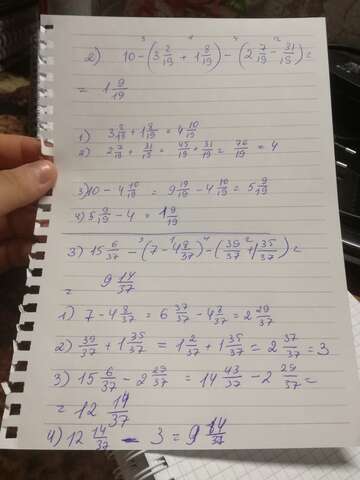 3 1 4 2
2) 10 - (3 2/19 + 1 8/19) - (2 7/19 - 31/19) =
= 1 9/19
1) 3 2/19 + 1 8/19 = 4 10/19
2) 2 7/19 + 31/19 = 45/19 + 31/19 = 76/19 = 4
3) 10 - 4 10/19 = 9 19/19 - 4 10/19 = 5 9/19
4) 5 9/19 - 4 = 1 9/19
3) 15 6/37 - (7 - 4 8/37) - (39/37 + 1 35/37) =
= 9 14/37
1) 7 - 4 8/37 = 6 37/37 - 4 8/37 = 2 29/37
2) 39/37 + 1 35/37 = 1 2/37 + 1 35/37 = 2 37/37 = 3
3) 15 6/37 - 2 29/37 = 14 43/37 - 2 29/37 =
= 12 14/37
4) 12 14/37 - 3 = 9 14/37